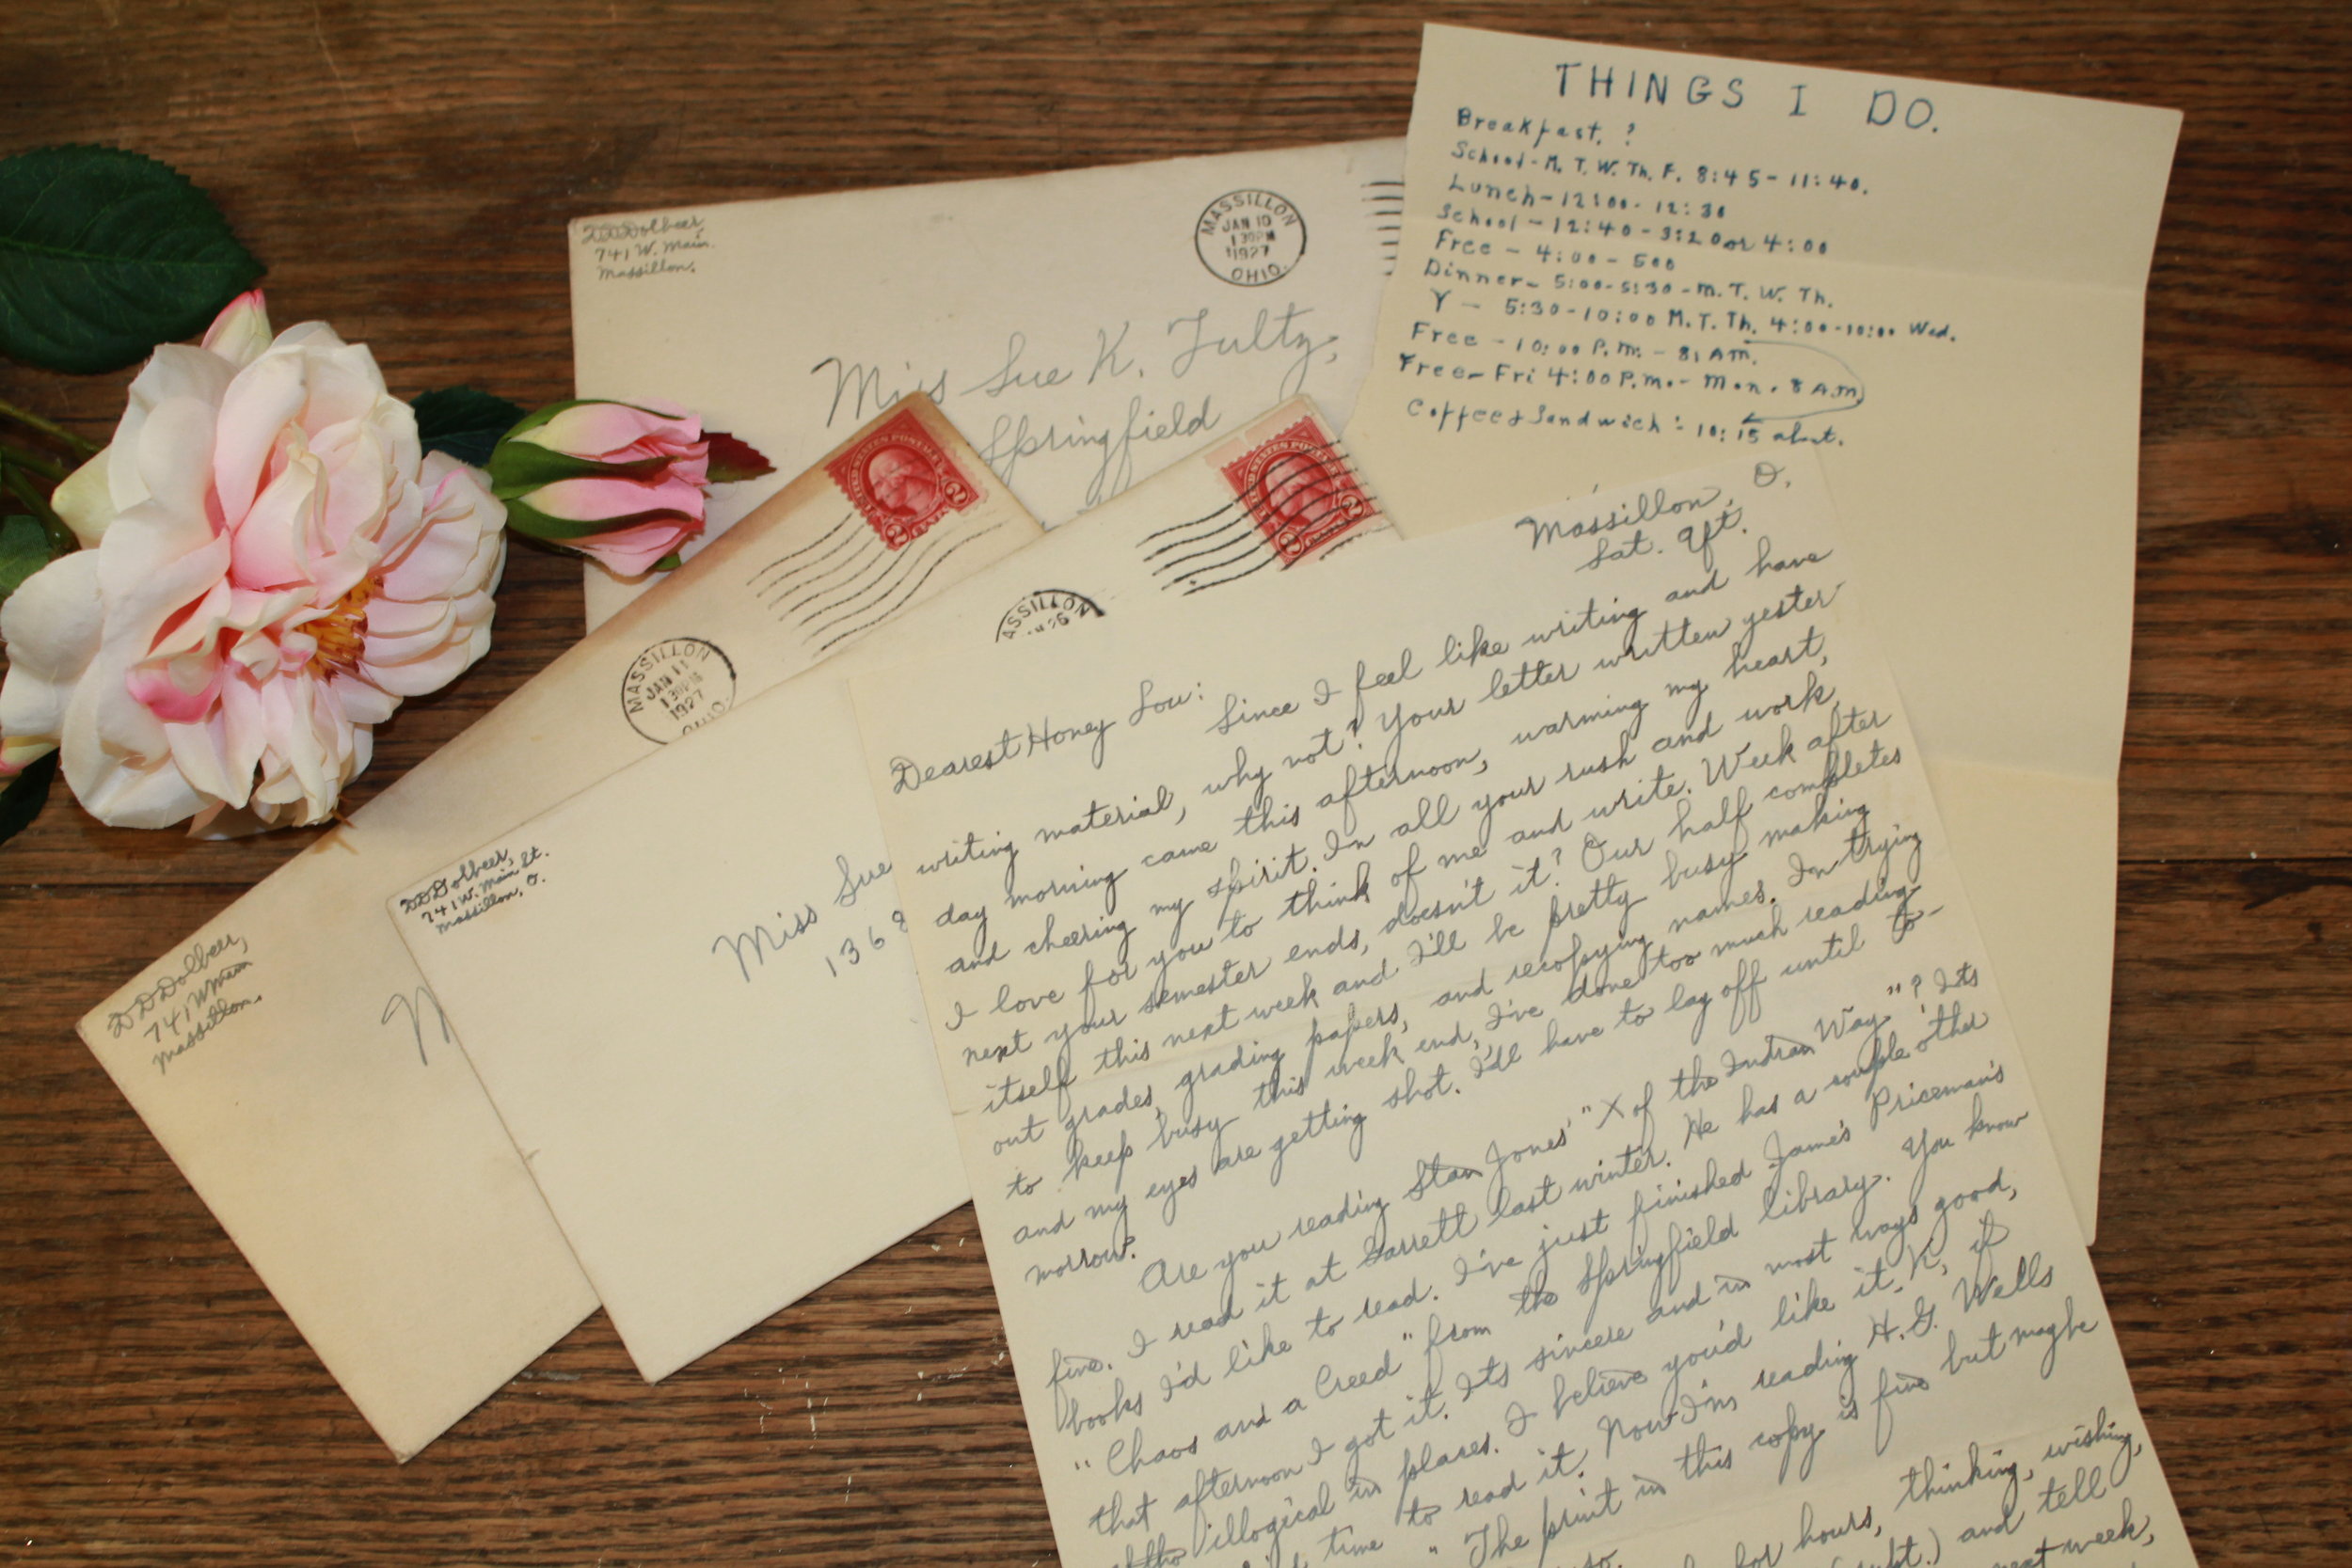 THINGS I DO.
Breakfast. ?
School - M. T. W. Th. F. 8:45 - 11:40.
Lunch - 12:00 - 12:30
School - 12:40 - 3:20 or 4:00
Free - 4:00 - 500
Dinner - 5:00 - 5:30 - M. T. W. Th.
Y - 5:30 - 10:00 M. T. Th. 4:00 - 10:00 Wed.
Free - 10:00 P.m. - 8, AM.
Free - Fri 4:00 P.m. - Mon. 8 A.m
Coffee & Sandwich : - 10:15 about.
DDDolbeer,
741 W. Main.
Massillon.
MASSILLON
JAN 10
1 30PM
1927
OHIO.
Miss Sue K. Fultz,
Springfield
UNITED STATES POSTAGE
2 2
MASSILLON
JAN 11
1 30PM
1927
OHIO.
DDDolbeer,
741 W Main
Massillon.
UNITED STATES POSTAGE
2 2
ASSILLON
26
DDDolbeer,
741 W. Main St.
Massillon, O.
Miss Sue
1368
Massillon, O.
Sat. Aft.
Dearest Honey Lou:
Since I feel like writing and have
writing material, why not? Your letter written yester-
day morning came this afternoon, warming my heart,
and cheering my spirit. In all your rush and work,
I love for you to think of me and write. Week after
next your semester ends, doesn't it? Our half completes
itself this next week and I'll be pretty busy making
out grades, grading papers, and recopying names. In trying
to keep busy this week end, I've done too much reading
and my eyes are getting shot. I'll have to lay off until to-
morrow.
Are you reading Stan Jones' "X of the Indian Way"? Its
fine. I read it at Garrett last winter. He has a couple other
books I'd like to read. I've just finished James Priceman's
"Chaos and a Creed" from the Springfield library. You know
that afternoon I got it. Its sincere and in most ways good,
altho illogical in places. I believe you'd like it, K, if
time to read it. Now I'm reading H. G. Wells
"The print in this copy is fine but maybe
for hours, thinking, wishing,
and tell
next week,